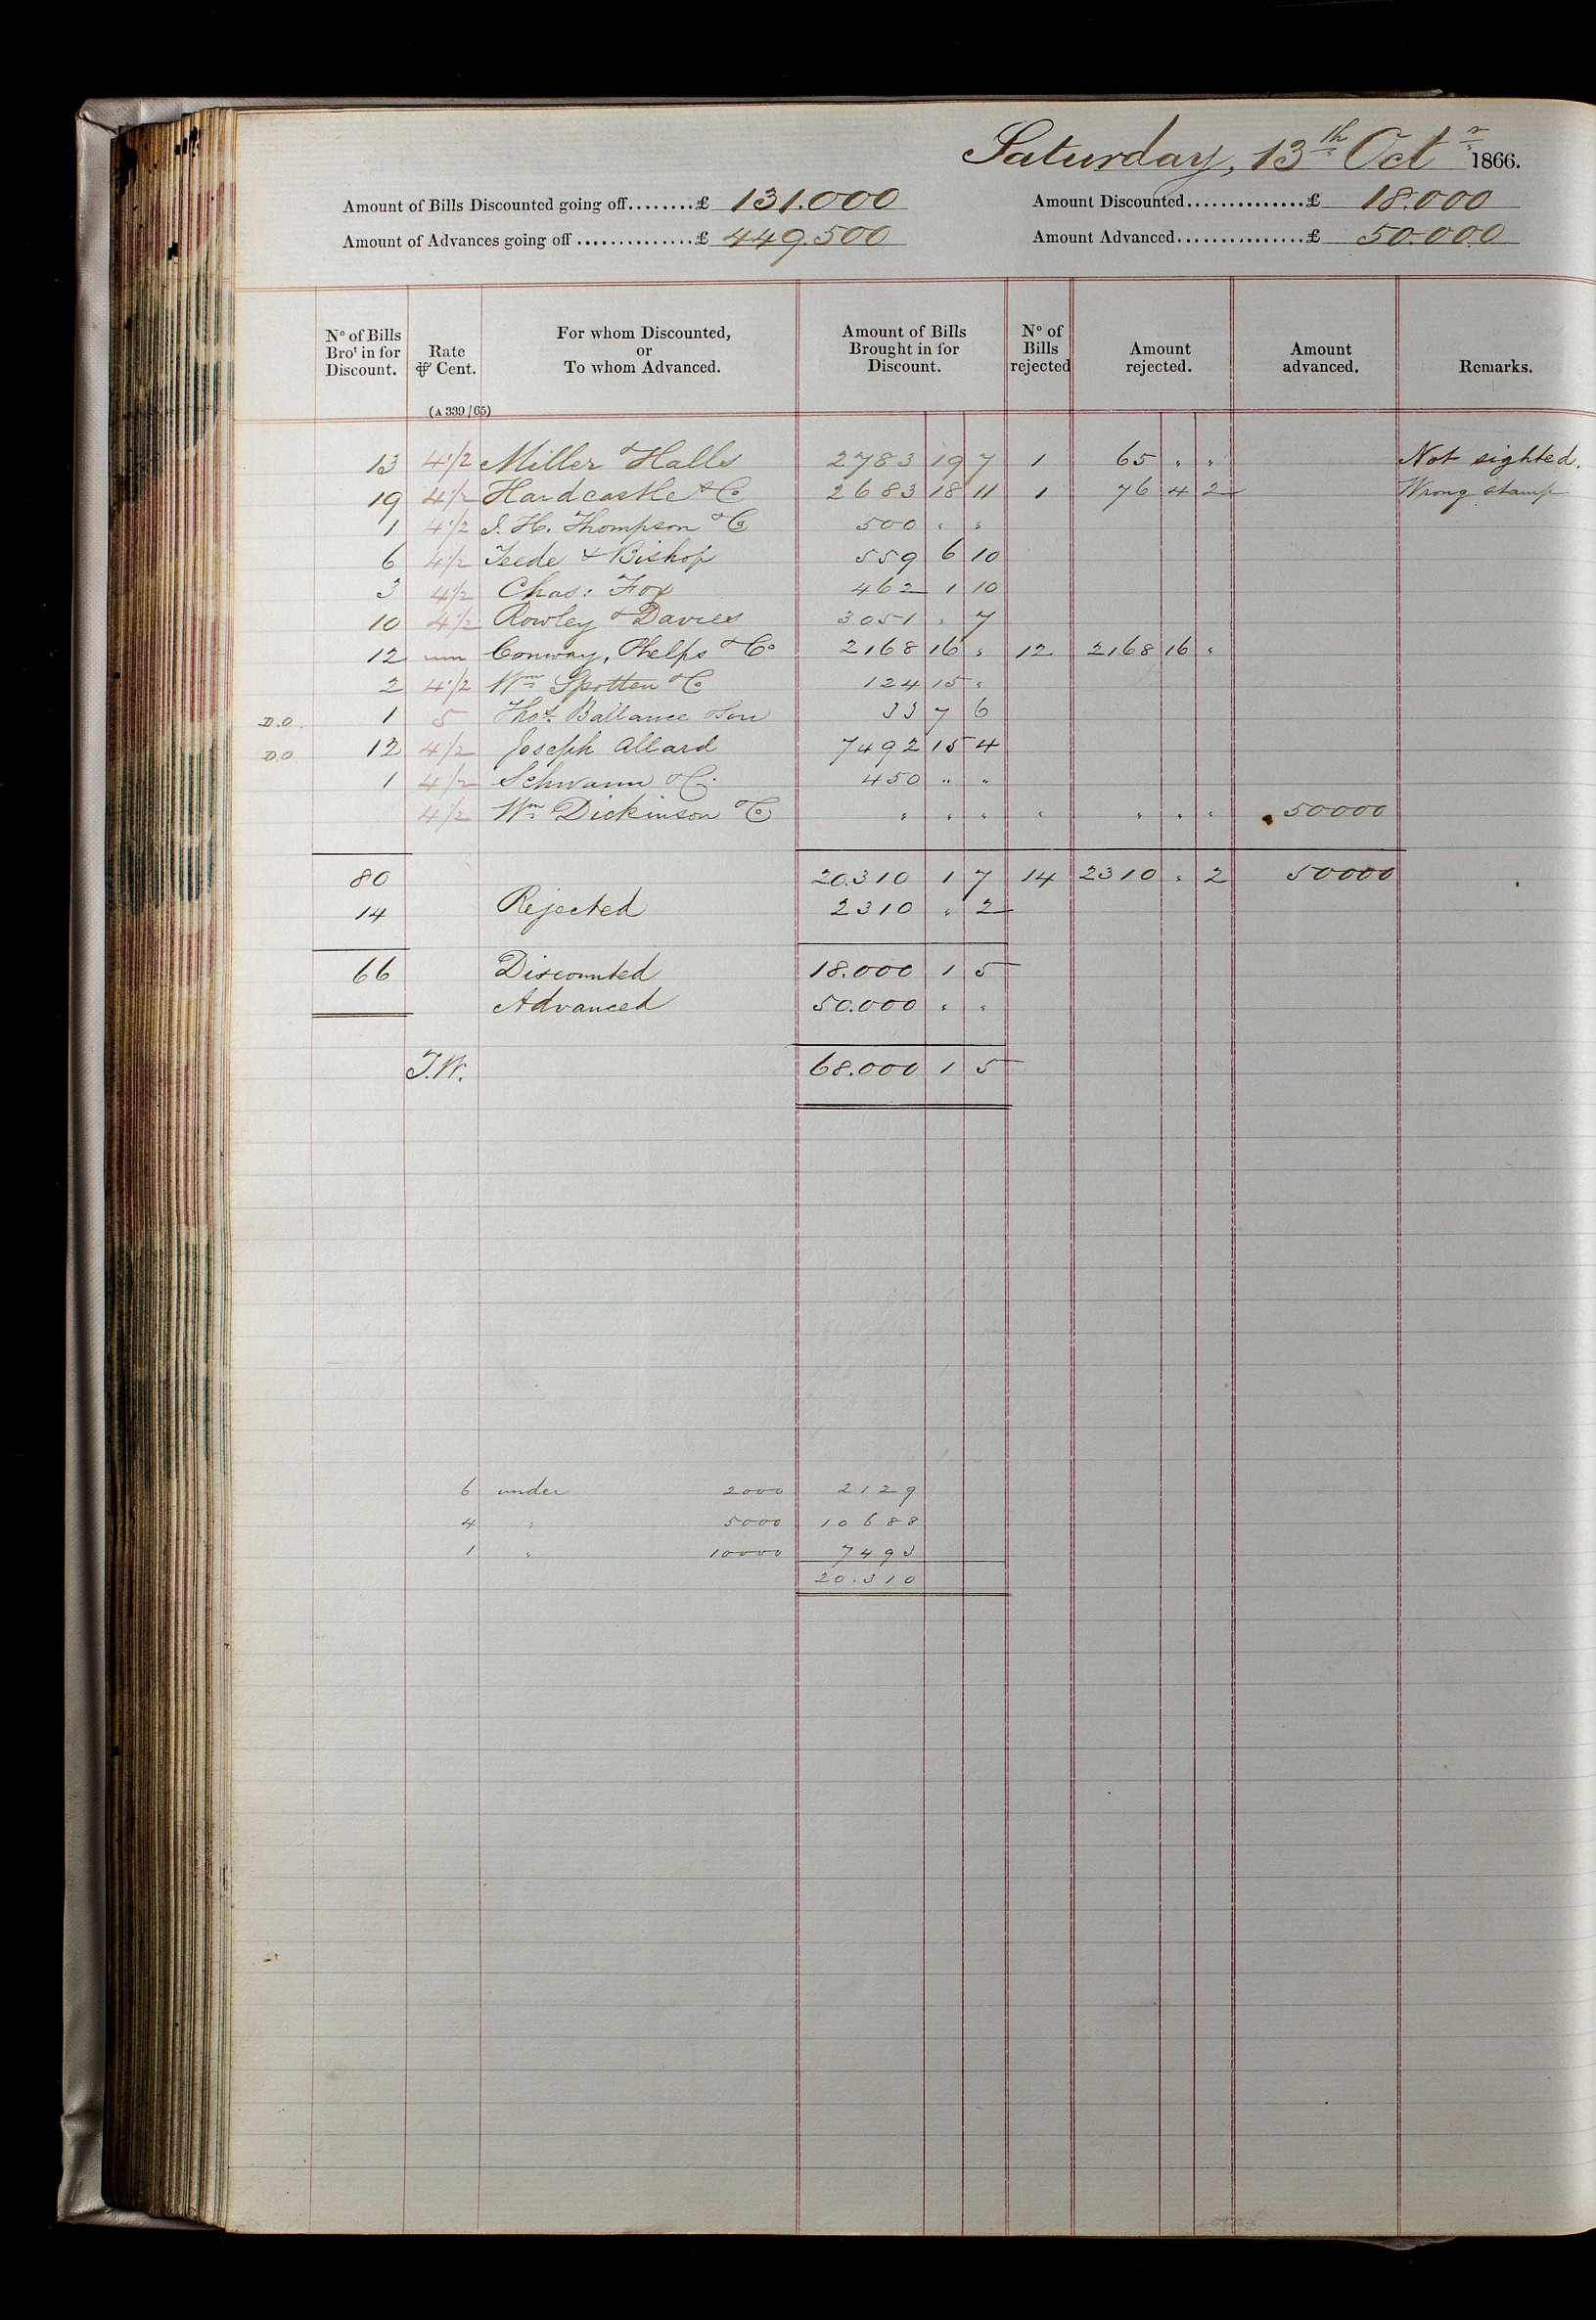 Saturday, 13th Octr 1866.
Amount of Bills Discounted going off........£ 131.000 Amount Discounted..............£ 18.000
Amount of Advances going off..............£ 449.500 Amount Advanced...............£ 50.000
No of Bills Brot in for Discount. Rate ⅌ Cent. For whom Discounted, or To whom Advanced. Amount of Bills Brought in for Discount. No of Bills rejected Amount rejected. Amount advanced. Remarks.
(A 339/65)
13 4 1/2 Miller & Halls 2783 19 7 1 65 " " Not sighted.
19 4 1/2 Hardcastle & Co 2683 18 11 1 76 4 2 Wrong stamp
1 4 1/2 J. H. Thompson & Co 500 " "
6 4 1/2 Teede & Bishop 559 6 10
3 4 1/2 Chas: Fox 462 1 10
10 4 1/2 Rowley & Davies 3051 " 7
12 Conway, Phelps & Co 2168 16 " 12 2168 16 "
2 4 1/2 Wm Spotten & Co 124 15 "
D.O. 1 5 Thos. Ballance & Son 33 7 6
D.O. 12 4 1/2 Joseph Allard 7492 15 4
1 4 1/2 Schwann & Co 450 " "
4 1/2 Wm Dickinson & Co " " " " " " " 50000
80 20.310 1 7 14 2310 " 2 50000
14 Rejected 2310 " 2
66 Discounted 18.000 1 5
Advanced 50.000 " "
J.W. 68.000 1 5
6 under 2000 2129
4 " 5000 10688
1 " 10000 7493
20.310